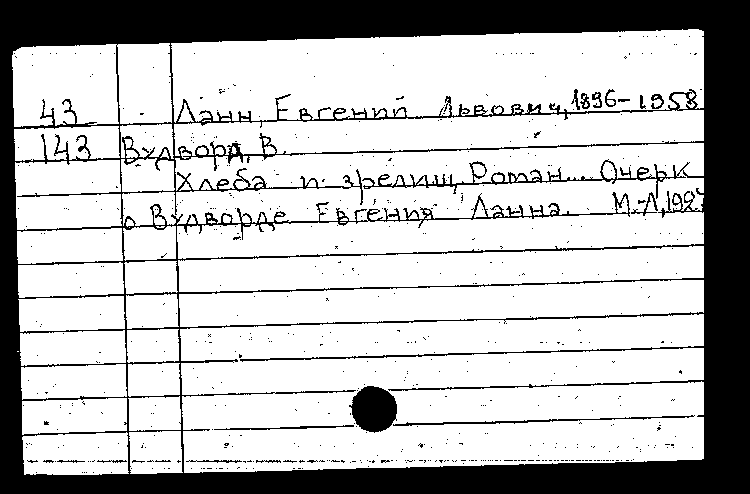 43 Ланн, Евгений Львович, 1896-1958
143 Вудворд, В.
Хлеба и зрелищ. Роман... Очерк
о Вудворде Евгения Ланна. М.-Л., 1927